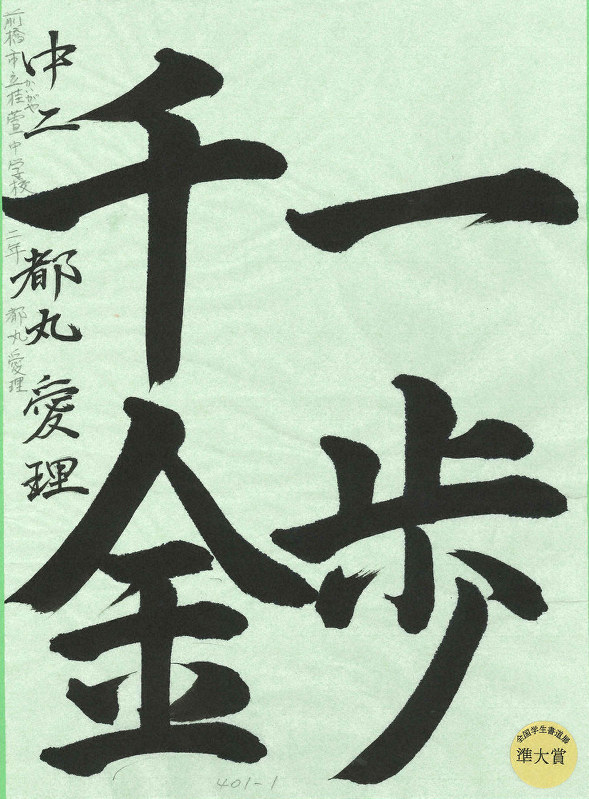 一歩
千金
中二 都丸愛理
前橋市立桂萱中学校 二年 都丸愛理
かいがや
401-1
全国学生書道展
準大賞